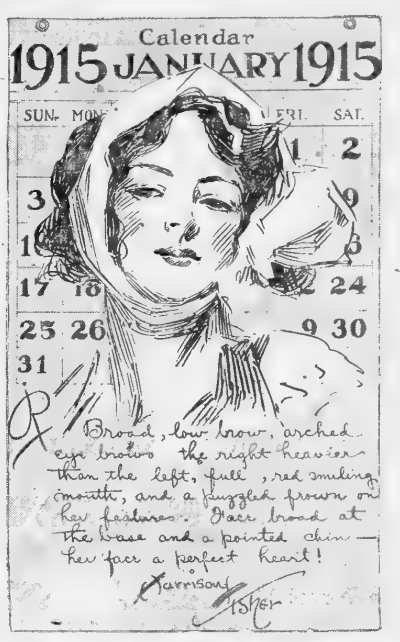 Calendar
1915 JANUARY 1915
SUN. MON. FRI. SAT.
1 2
3 9
1 6
17 18 2 24
25 26 9 30
31
R
Broad, low brow, arched
eye brows the right heavier
than the left, full, red smiling
mouth, and a puzzled frown on
her features. Face broad at
the base and a pointed chin —
her face a perfect heart!
Harrison
Fisher